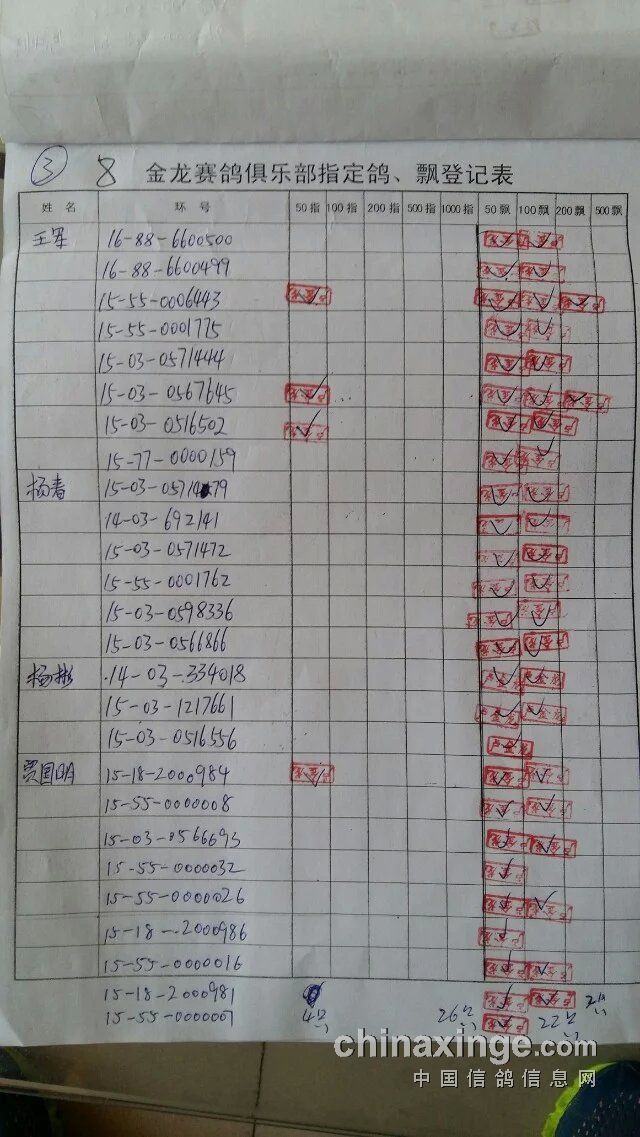 ③ 8 金龙赛鸽俱乐部指定鸽、飘登记表
姓名 环号 50指 100指 200指 500指 1000指 50飘 100飘 200飘 500飘
王军 16-88-6600500
16-88-6600499
15-55-0006443
15-55-0001775
15-03-0571444
15-03-0567645
15-03-0516502
15-77-0000159
杨春 15-03-0571479
14-03-692141
15-03-0571472
15-55-0001762
15-03-0598336
15-03-0566866
杨彬 14-03-334018
15-03-1217661
15-03-0516556
贾国明 15-18-2000984
15-55-0000008
15-03-0566693
15-55-0000032
15-55-0000026
15-18-2000986
15-55-0000016
15-18-2000981
15-55-0000001
chinaxinge.com
中国信鸽信息网